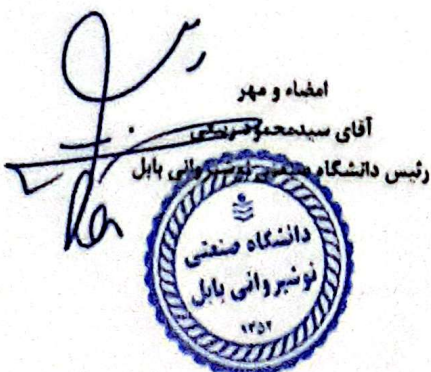 امضاء و مهر
آقای سیدمحمود ربیعی
رئیس دانشگاه صنعتی نوشیروانی بابل
دانشگاه صنعتی
نوشیروانی بابل
۱۳۵۲